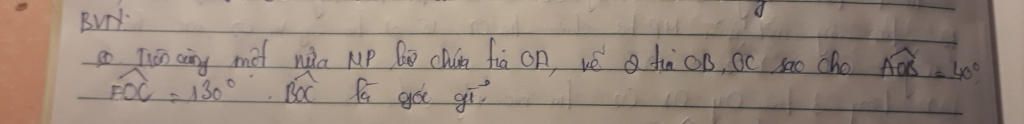 BVN:
① Trên cùng một nửa MP bờ chứa tia OA, vẽ 2 tia OB, OC sao cho AOB = 40°
EOC = 130°. BOC là góc gì?